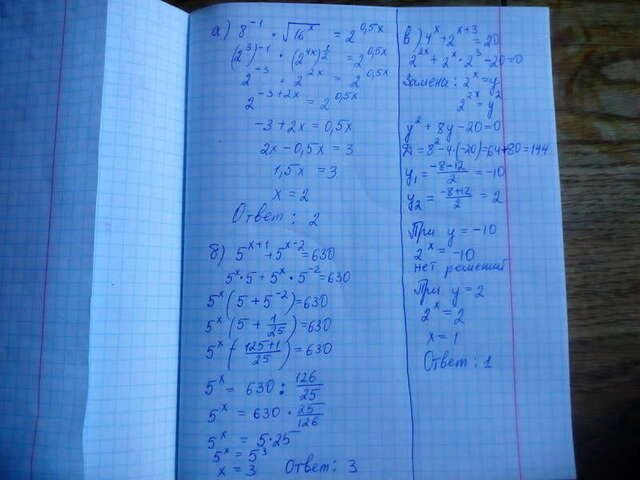 а) 8⁻¹ · √16ˣ = 2^0,5x
(2³)⁻¹ · (2^4x)^1/2 = 2^0,5x
2⁻³ · 2^2x = 2^0,5x
2^-3+2x = 2^0,5x
-3+2x = 0,5x
2x-0,5x = 3
1,5x = 3
x = 2
Ответ: 2
б) 5^x+1 + 5^x-2 = 630
5ˣ·5 + 5ˣ·5⁻² = 630
5ˣ(5+5⁻²)=630
5ˣ(5+1/25)=630
5ˣ(125+1/25)=630
5ˣ = 630 : 126/25
5ˣ = 630 · 25/126
5ˣ = 5·25
5ˣ = 5³
x = 3 Ответ: 3
в) 4ˣ+2^x+3 = 20
2^2x + 2ˣ·2³-20=0
Замена: 2ˣ=y
2^2x = y²
y² + 8y-20=0
Д=8²-4·(-20)=64+80=144
y₁ = -8-12/2 = -10
y₂ = -8+12/2 = 2
При y = -10
2ˣ = -10
нет решений
При y = 2
2ˣ = 2
x = 1
Ответ: 1